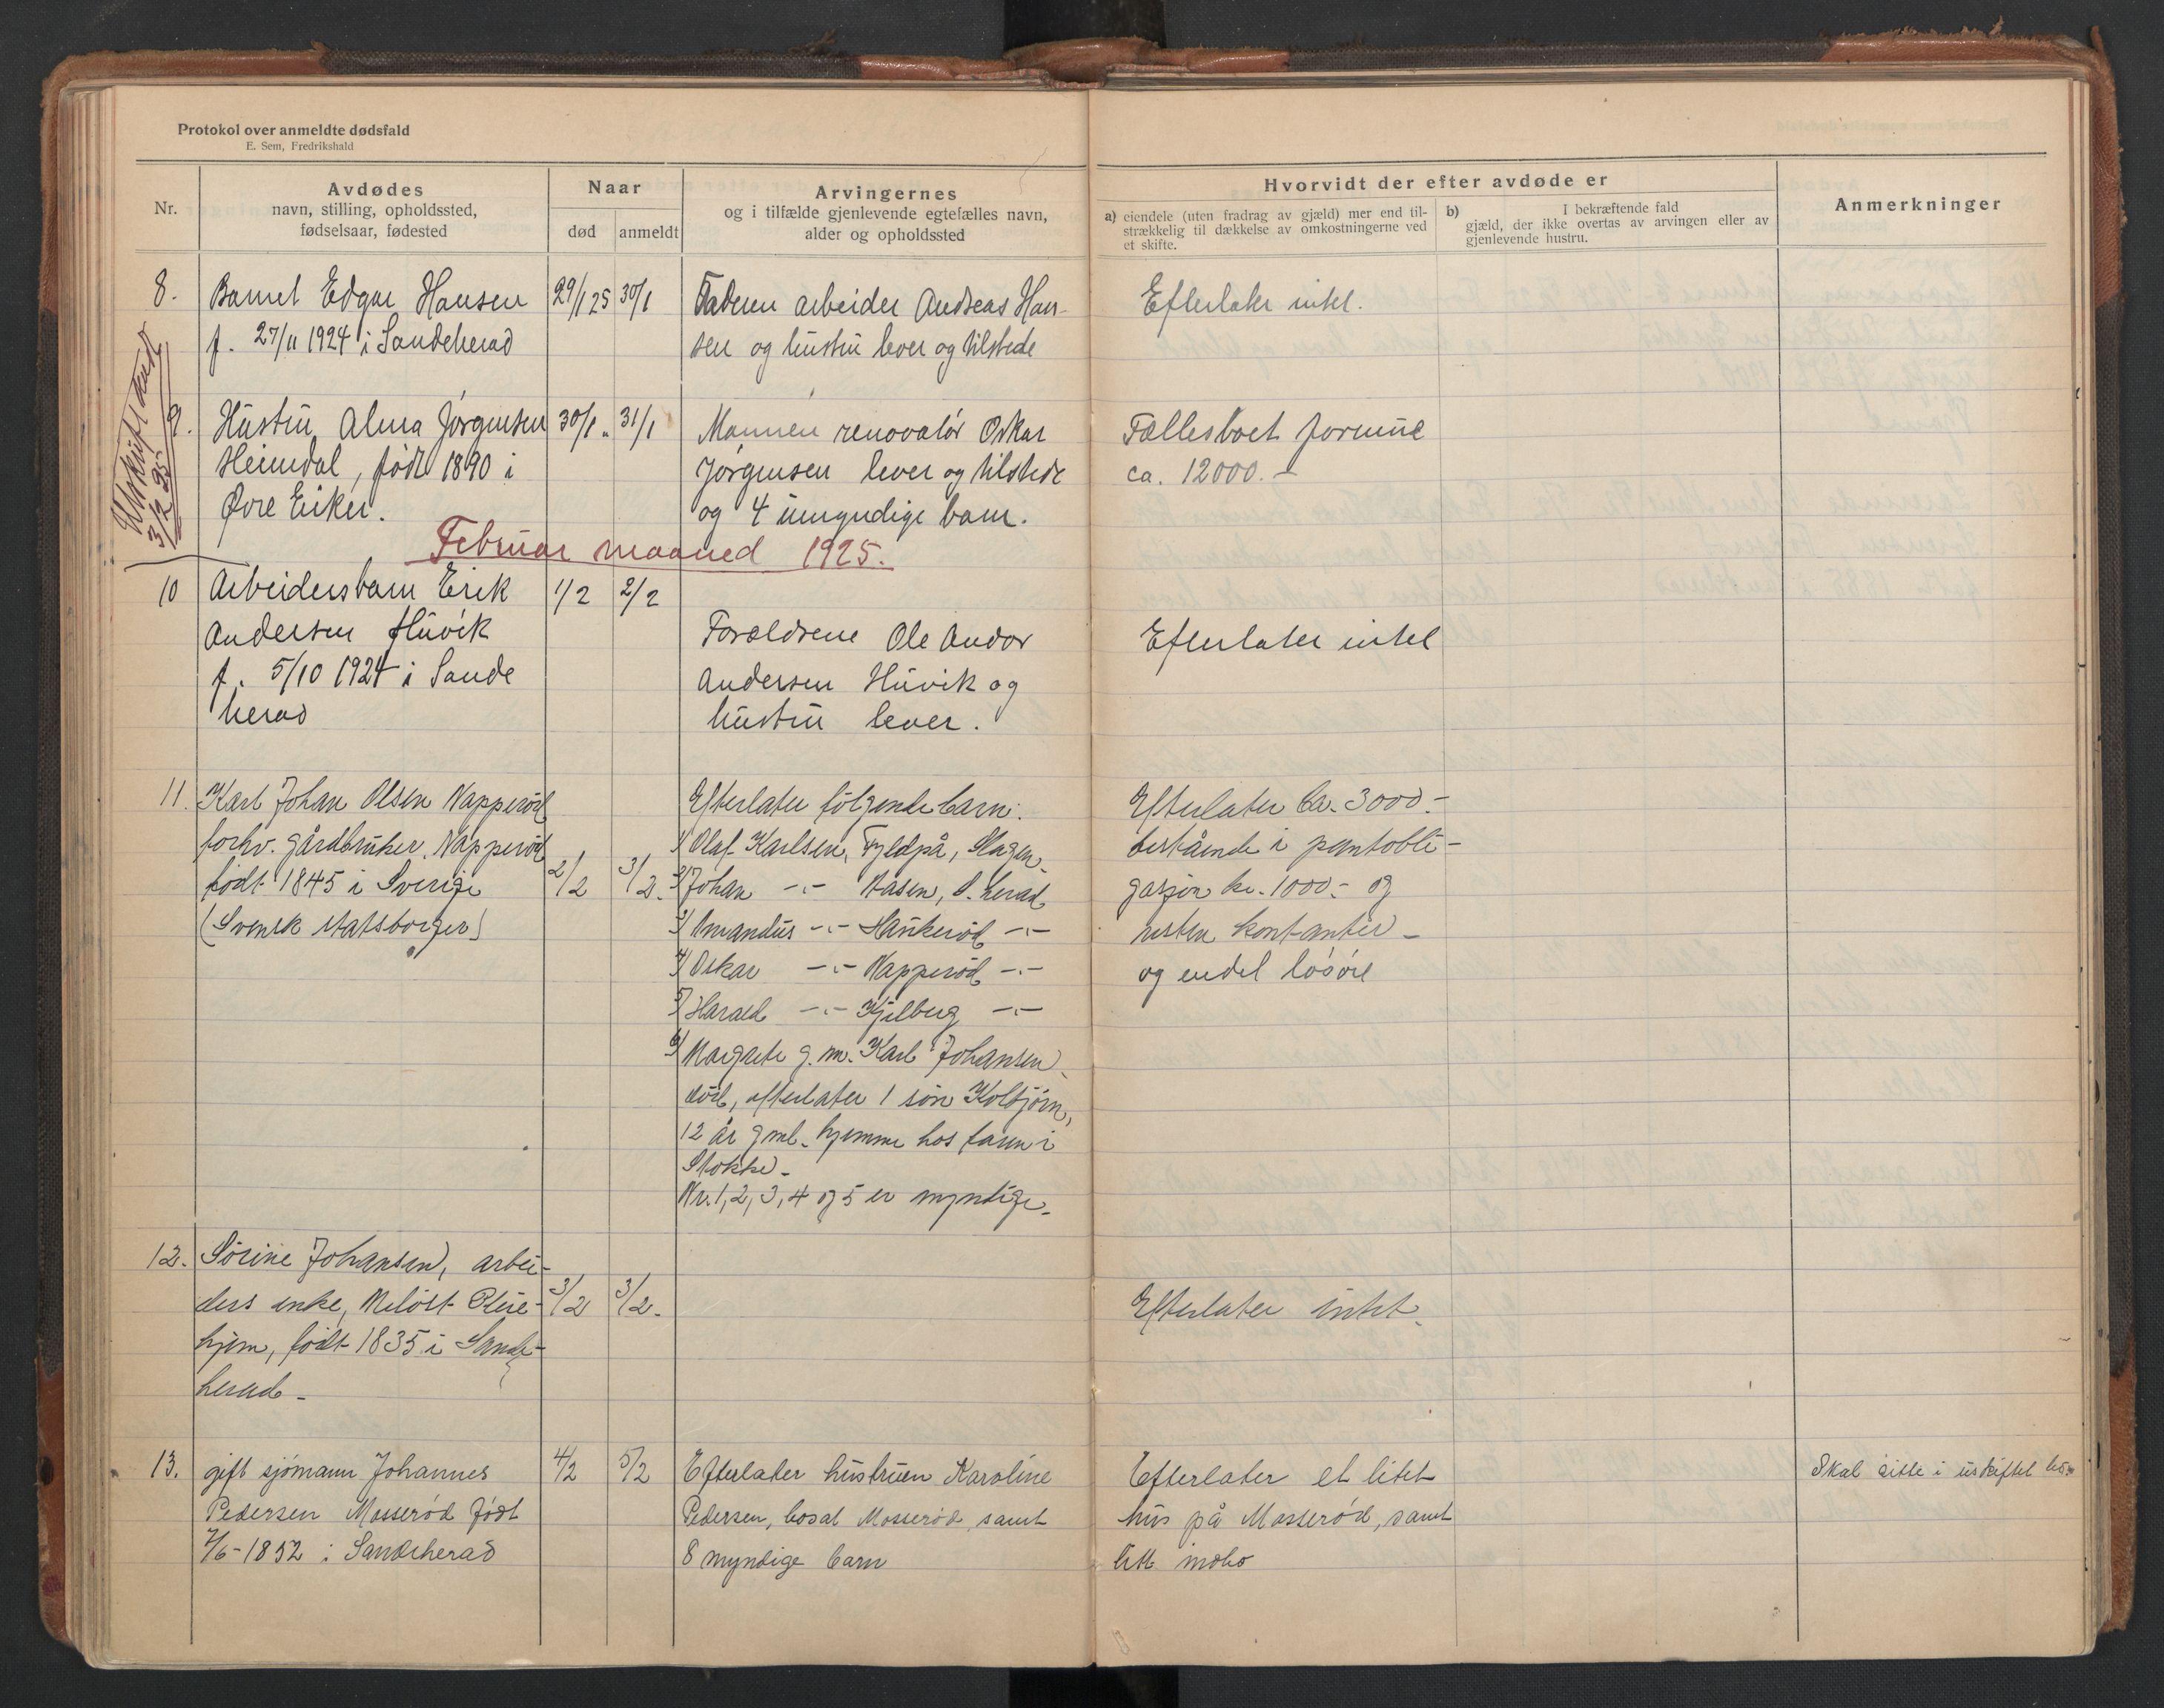 Protokol over anmeldte dødsfald
E. Sem, Fredrikshald
Nr.
Avdødes
navn, stilling, opholdssted,
fødselsaar, fødested
Naar
død
anmeldt
Arvingernes
og i tilfælde gjenlevende egtefælles navn,
alder og opholdssted
Hvorvidt der efter avdøde er
a) eiendele (uten fradrag av gjæld) mer end til-
strækkelig til dækkelse av omkostningerne ved
et skifte.
b) I bekræftende fald
gjæld, der ikke overtas av arvingen eller av
gjenlevende hustru.
Anmerkninger
8.
Barnet Edgar Hansen
f. 27/11 1924 i Sandeherad
29/1 25
30/1
Faderen arbeider Andreas Han-
sen og hustru lever og tilstede
Efterlater intet.
Utskrift sendt
3/2 25
9.
Hustru Alma Jørgensen
Heimdal, født 1890 i
Øvre Eiker.
30/1 "
31/1
Mannen renovatør Oskar
Jørgensen lever og tilstede
og 4 umyndige barn.
Fællesboet formue
ca. 12000.-
Februar maaned 1925.
10
Arbeidersbarn Erik
Andersen Huvik
f. 5/10 1924 i Sande
herad
1/2
2/2
Forældrene Ole Andor
Andersen Huvik og
hustru lever.
Efterlater intet
11.
Karl Johan Olsen Napperød
forhv. gårdbruker, Napperød
født 1845 i Sverige
(Svensk statsborger)
2/2
3/2.
Efterlater følgende barn:
1) Olaf Karlsen, Fyldpå, Slagen
2) Johan -"- Aasen, S. herad
3) Amandus -"- Haukerød -"-
4) Oskar -"- Napperød -"-
5) Harald -"- Kjelberg -"-
6) Margrete g. m. Karl Johansen
død, efterlater 1 søn Kolbjørn,
12 år gml. hjemme hos faren i
Stokke -
Nr. 1, 2, 3, 4 og 5 er myndige.
Efterlater ca. 3000.-
bestående i pantobli-
gasjon kr. 1000.- og
resten kontanter -
og endel løsøre
12.
Sørine Johansen, arbei-
ders enke, Meløst Pleie-
hjem, født 1835 i Sande-
herad -
3/2
3/2.
Efterlater intet.
13.
gift sjømann Johannes
Pedersen Mosserød født
7/6-1852 i Sandeherad
4/2
5/2
Efterlater hustruen Karoline
Pedersen, bosat Mosserød, samt
8 myndige barn
Efterlater et litet
hus på Mosserød, samt
litt indbo
Skal sitte i uskiftet bo.